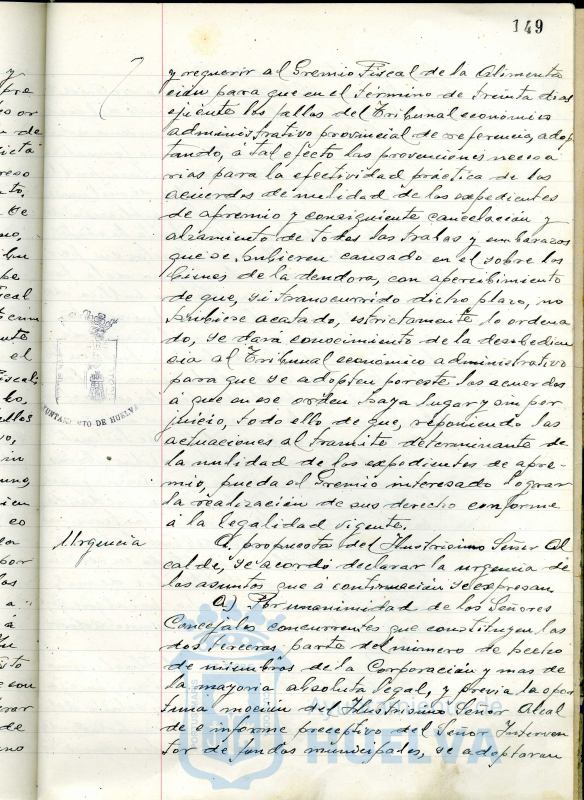 149
y requerir al Gremio Fiscal de la Alimenta
ción para que en el término de treinta dias
ejecute los fallos del Tribunal económico
administrativo provincial de referencia, adop
tando, á tal efecto las prevenciones necesa
rias para la efectividad práctica de los
acuerdos de nulidad de los expedientes
de apremio y consiguiente cancelación y
alzamiento de todas las trabas y embarazos
que se hubieren causado en el sobre los
bienes de la deudora, con apercibimiento
de que, si transcurrido dicho plazo, no
hubiese acatado, estrictamente lo ordena
do, se dará conocimiento de la desobedien
cia al Tribunal económico administrativo
para que se adopten por este los acuerdos
á que en ese orden haya lugar y sin per
juicio, todo ello de que, reponiendo las
actuaciones al tramite determinante de
la nulidad de los expedientes de apre
mio, pueda el Gremio interesado lograr
la realización de sus derecho conforme
á la legalidad vigente.
Urgencia
A propuesta del Ilustrisimo Señor Al
calde, se acordó declarar la urgencia de
los asuntos que á continuación se expresan
a) Por unanimidad de los Señores
Concejales concurrentes que constituyen las
dos terceras parte del número de hecho
de miembros de la Corporación y mas de
la mayoria absoluta legal, y previa la opor
tuna moción del Ilustrisimo Señor Alcal
de é informe preceptivo del Señor Interven
tor de fondos municipales, se adoptaron
AYUNTAMIENTO DE HUELVA
Ayuntamiento de
HUELVA